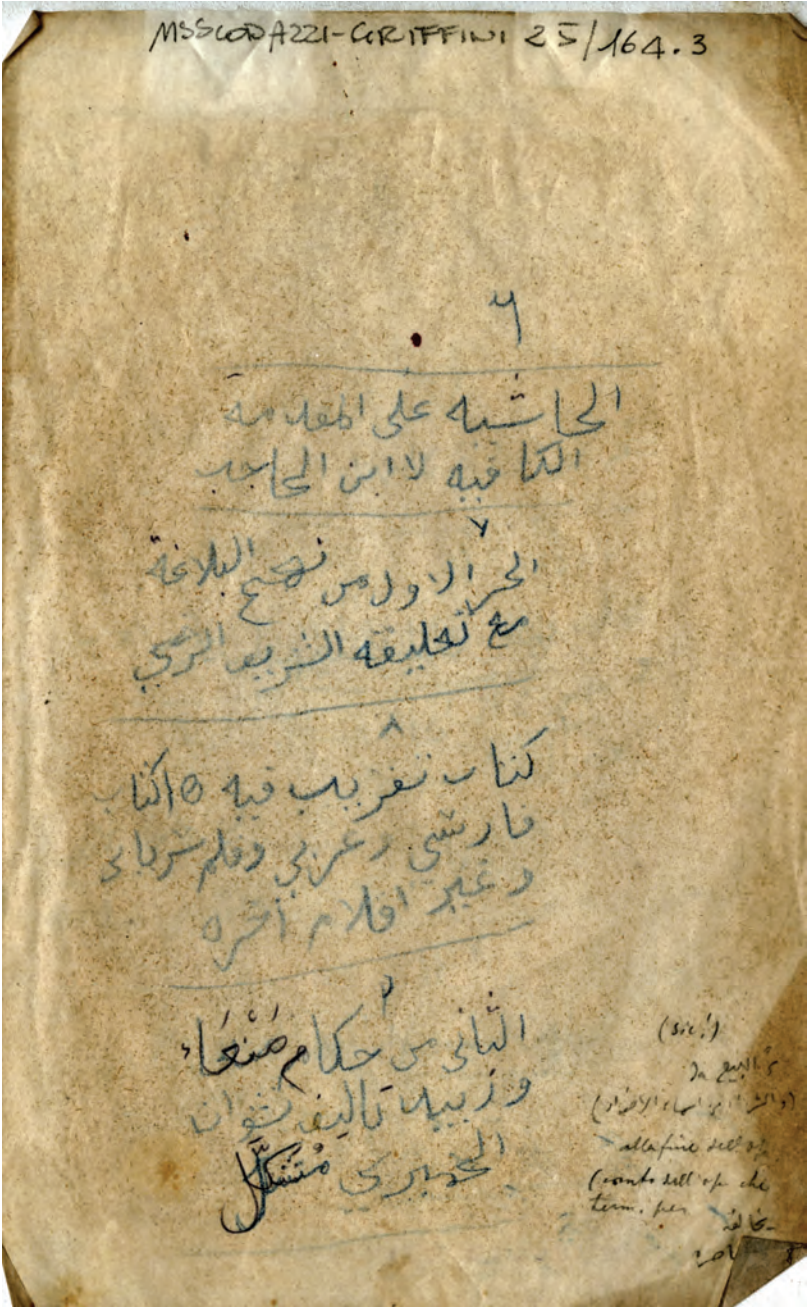 MSS CODAZZI-GRIFFINI 25/164.3
٦
الحاشيه على المقدمه
الكافيه لا ابن الحاجب
٧
الجز الاول من نهج البلاغة
مع تعليقه الشريف الرضي
٨
كتاب تغريب فيه ٥ اكتاب
فارسي وعربي وقلم سرياني
وغير اقلام اخره
٩
الثاني من حكام صَنْعَاء
وزبيد تاليف نشوان
الحميري مُتَشَكِّل
(sic!)
البيع
alla fine dell'op.
(conto dell'op. che
term. per